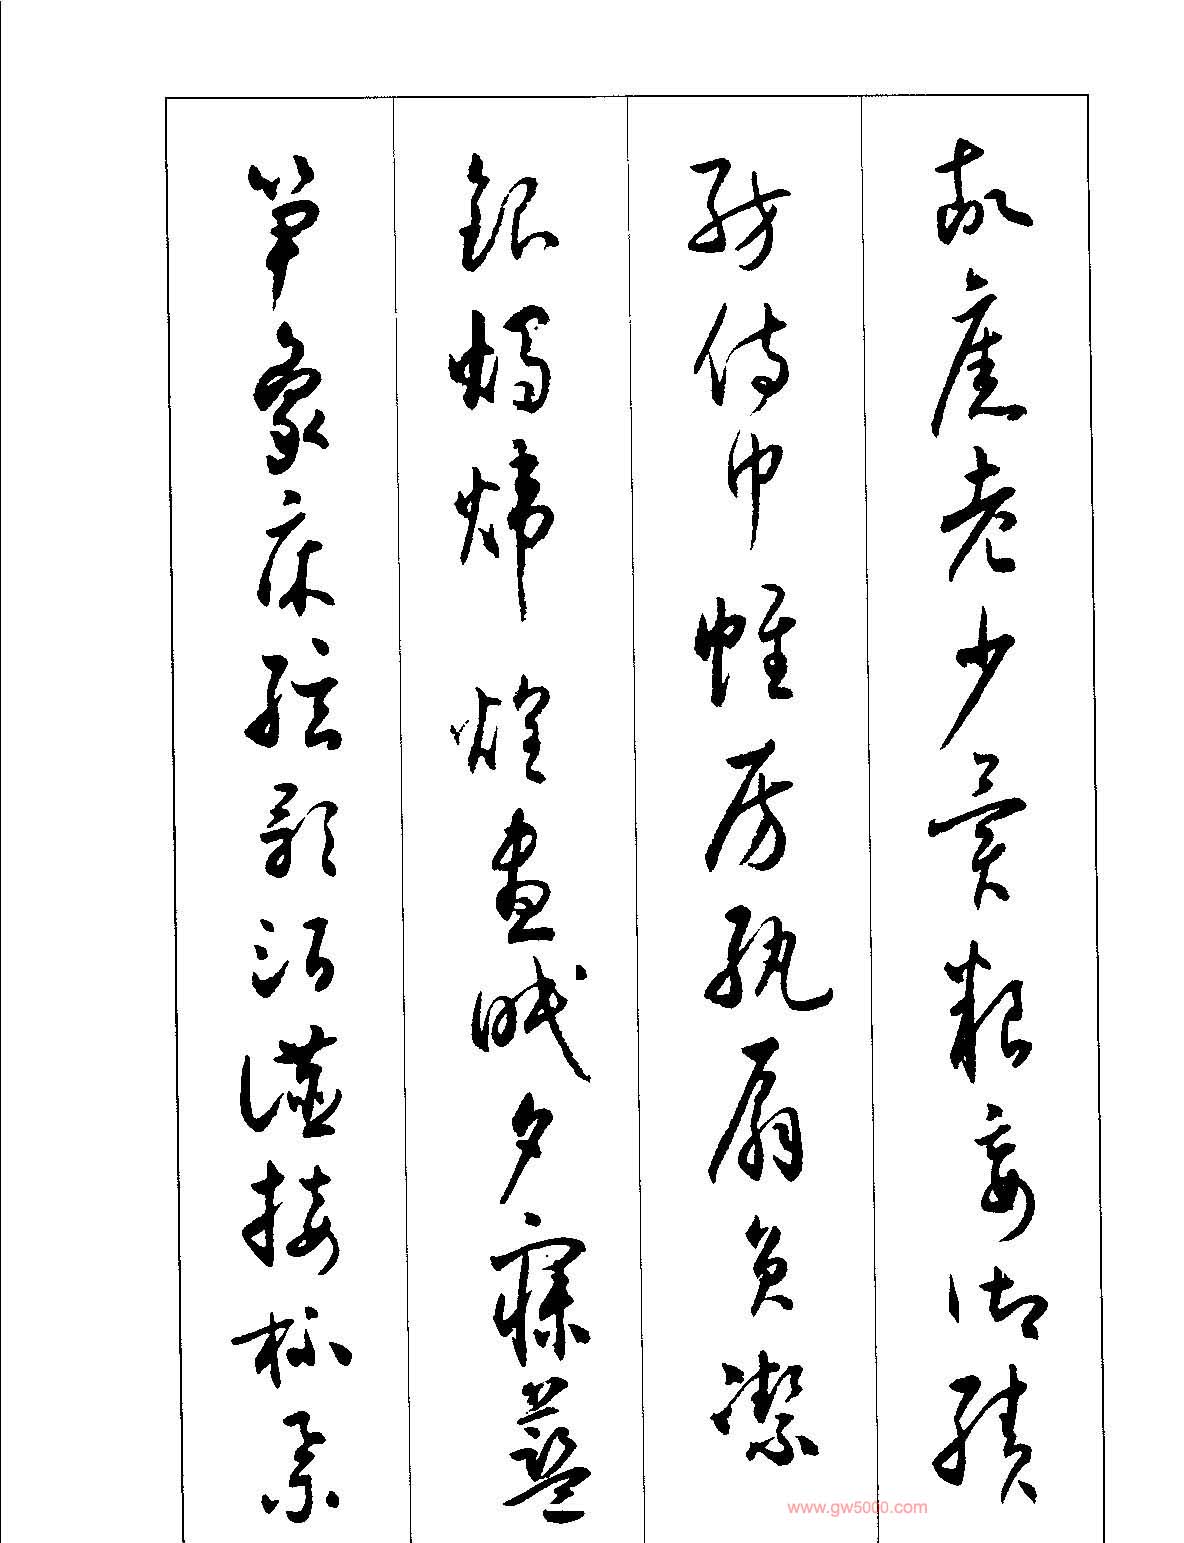 故旧老少异粮妾御绩
纺侍巾帷房纨扇员洁
银烛炜煌昼眠夕寐蓝
笋象床弦歌酒宴接杯举
www.gw5000.com